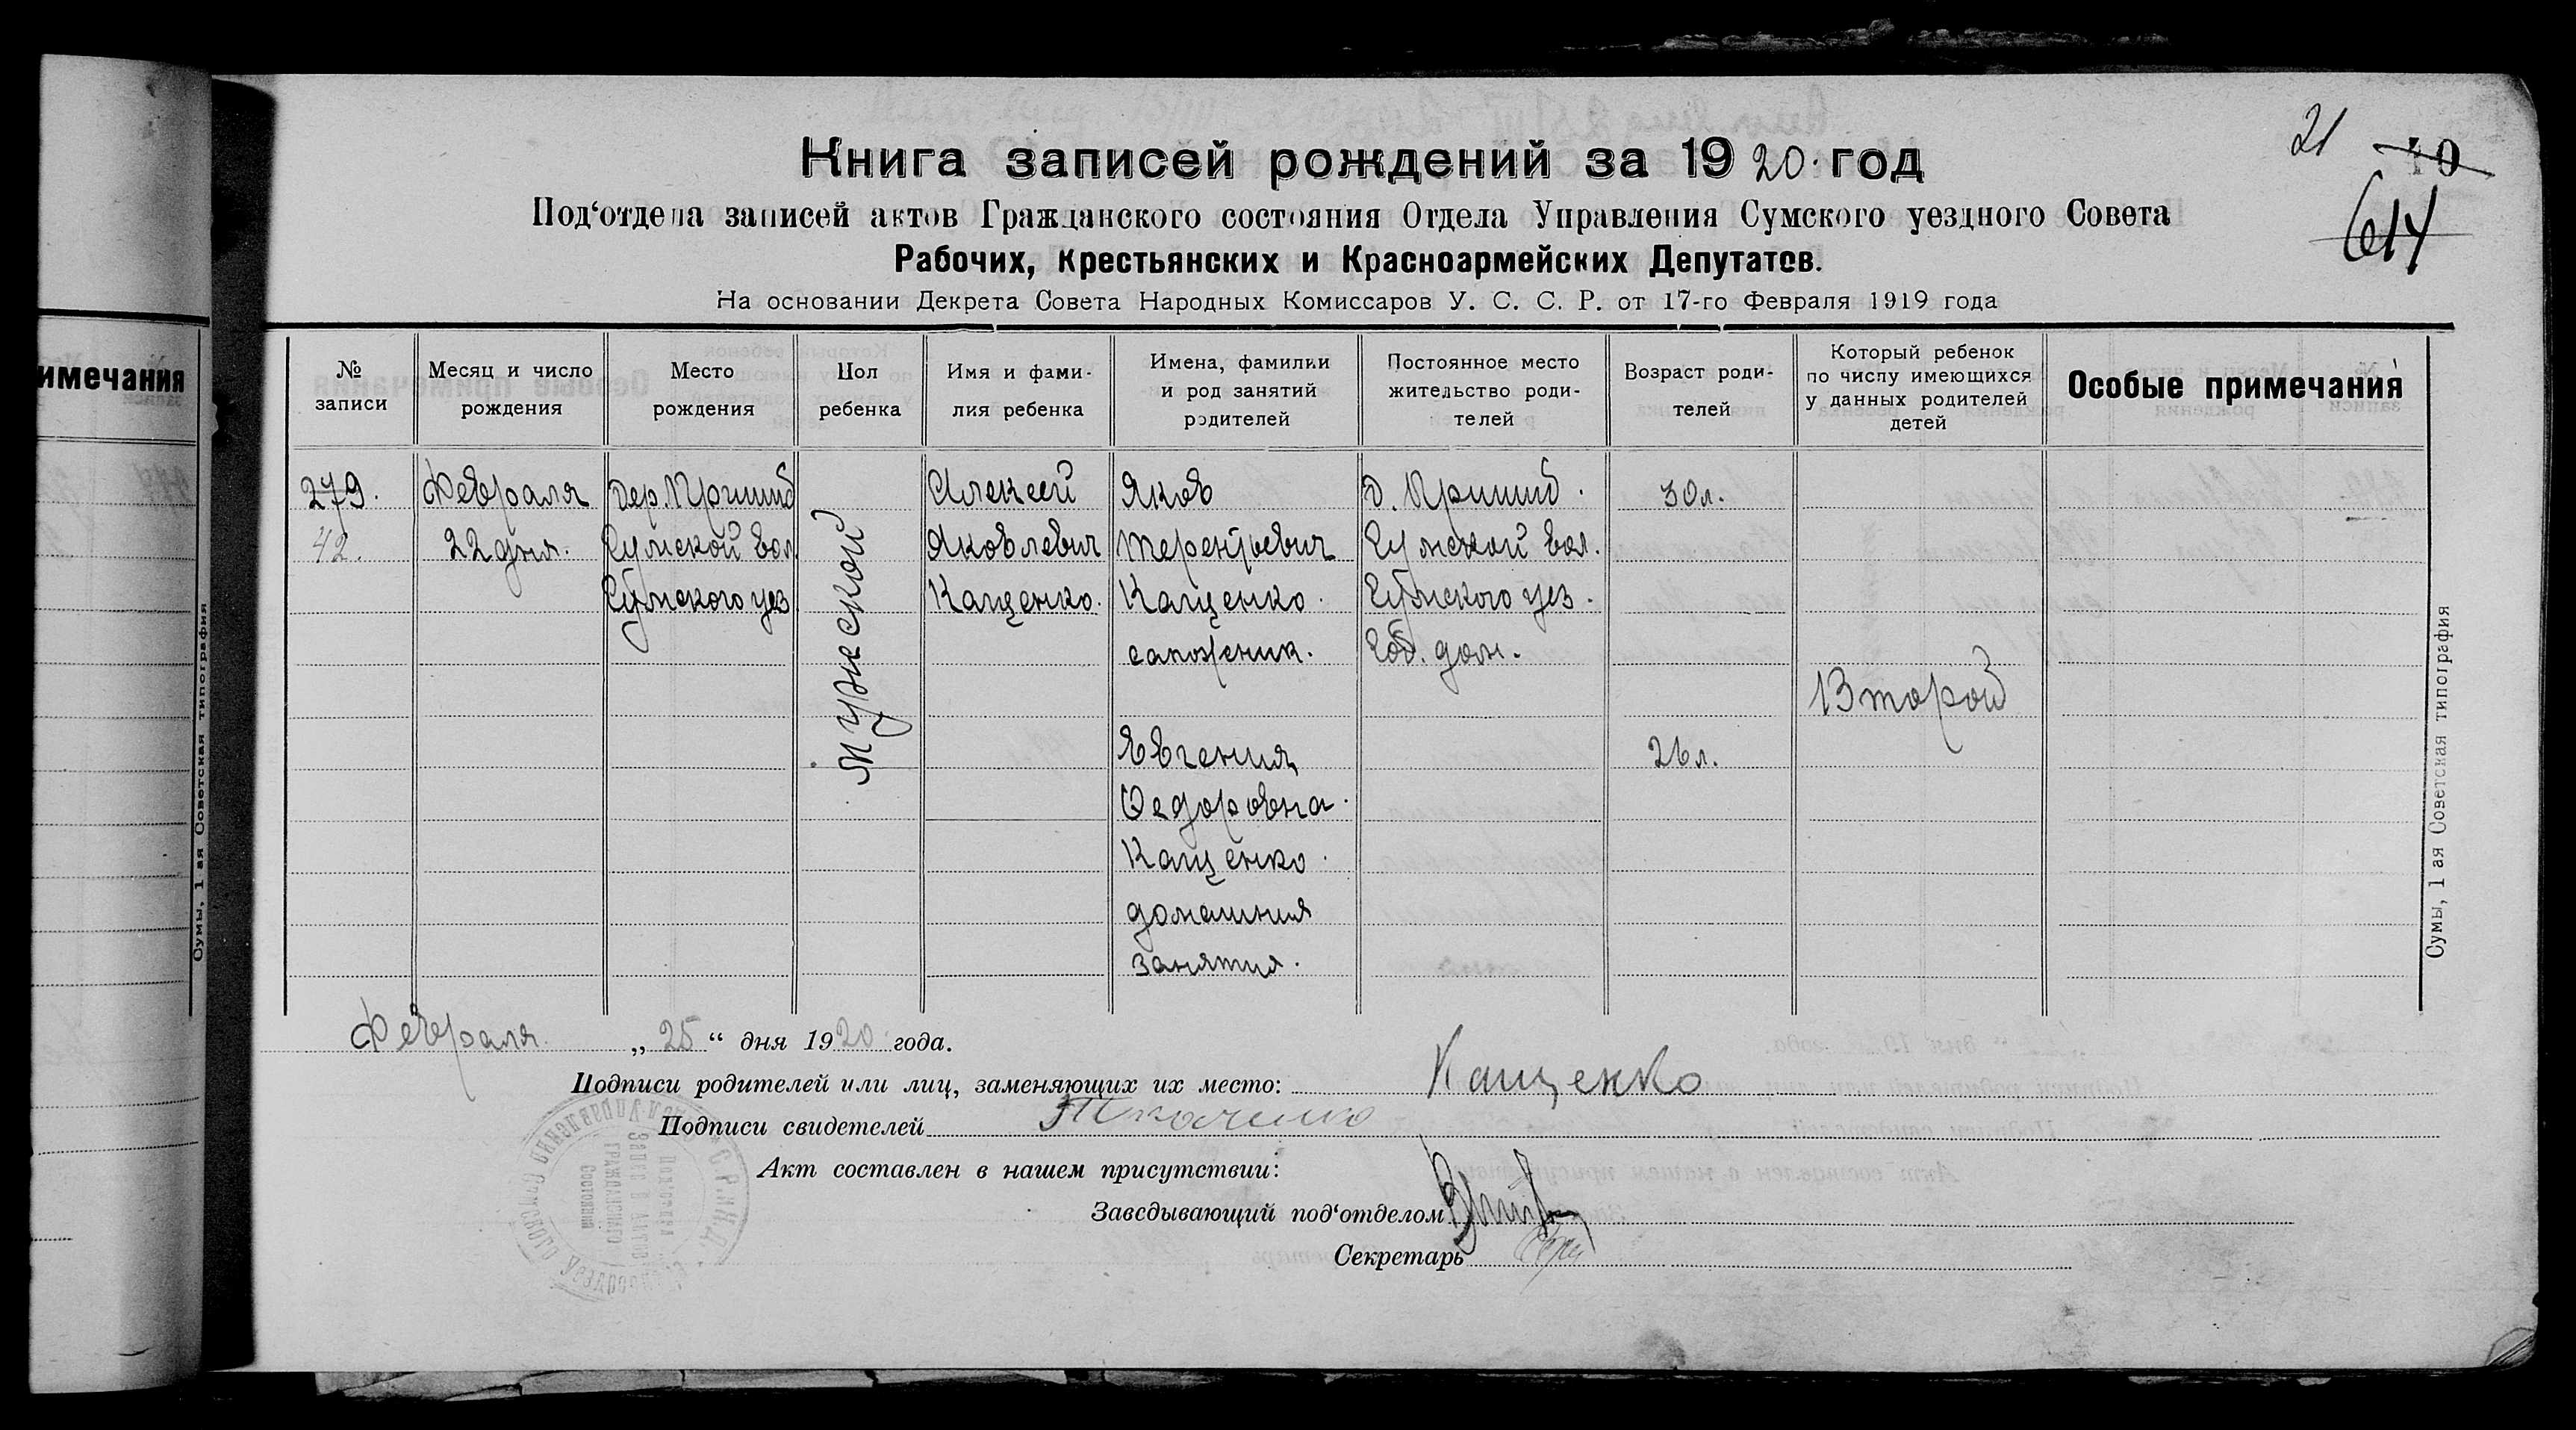 21
40
614
Книга записей рождений за 1920 год
Под‘отдела записей актов Гражданского состояния Отдела Управления Сумского уездного Совета
Рабочих, Крестьянских и Красноармейских Депутатов.
На основании Декрета Совета Народных Комиссаров У. С. С. Р. от 17-го Февраля 1919 года
имечания
№ записи
Месяц и число рождения
Место рождения
Пол ребенка
Имя и фами-
лия ребенка
Имена, фамилии
и род занятий
родителей
Постоянное место
жительство роди-
телей
Возраст роди-
телей
Который ребенок
по числу имеющихся
у данных родителей
детей
Особые примечания
279.
42.
Февраля
22 дня.
дер. Пришиб
Сумской вол.
Сумского уез
мужской
Алексей
Яковлевич
Кащенко.
Яков
Терентьевич
Кащенко.
сапожник.
Евгения
Федоровна.
Кащенко.
домашния
занятия.
д. Пришиб.
Сумской вол.
Сумского уез.
Соб. дом.
30 л.
26 л.
Второй
Февраля „25“ дня 1920 года.
Подписи родителей или лиц, заменяющих их место: Кащенко
Подписи свидетелей Ткаченко
Акт составлен в нашем присутствии:
Заведывающий под‘отделом
Секретарь
Сумы, 1 ая Советская типография
Сумы, 1 ая Советская типография